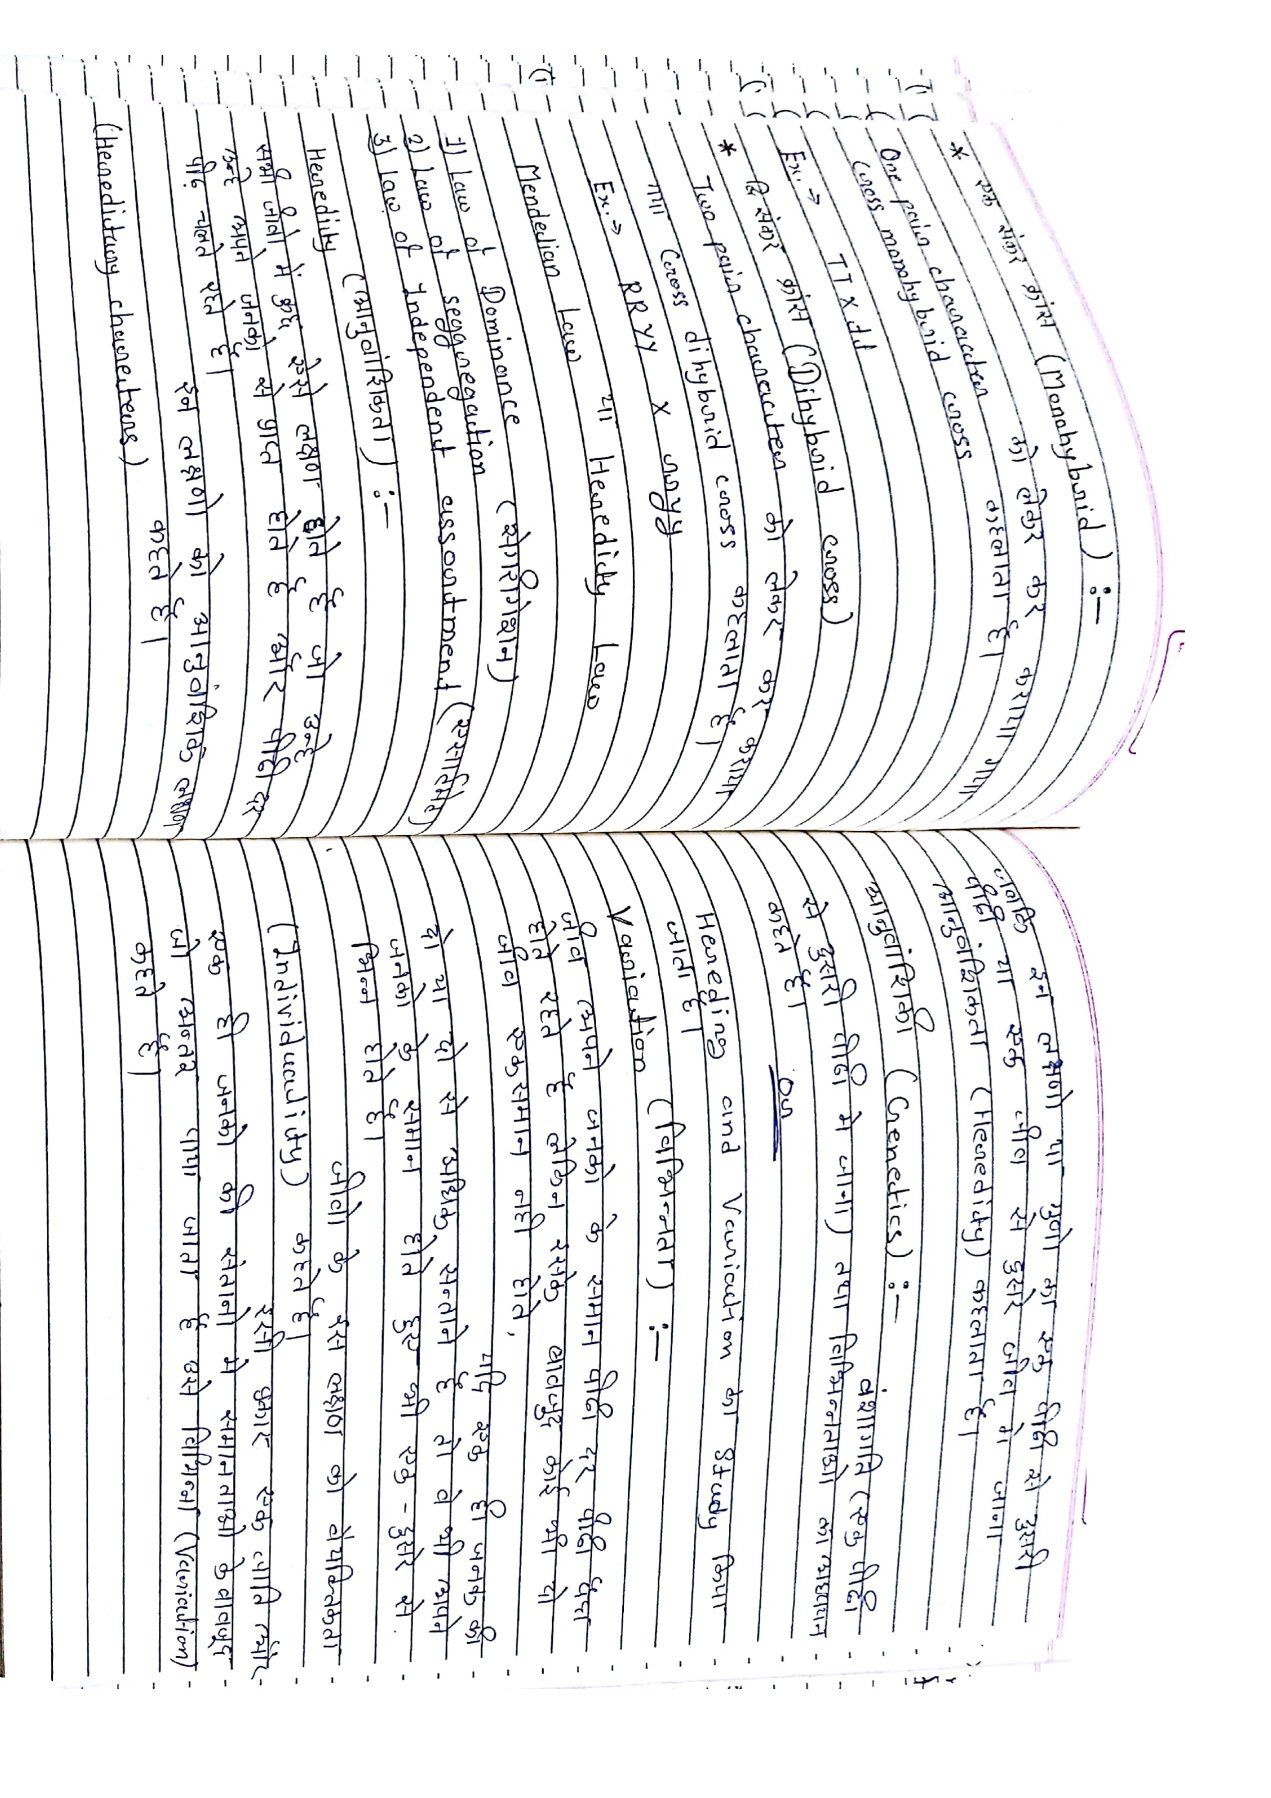 * एक संकर क्रांस (Monohybrid) :-
One pair character को लेकर कर कराया गया
cross monohybrid cross कहलाता है।
Ex. → TT x tt
* द्वि संकर क्रांस (Dihybrid cross)
Two pair character को लेकर कर कराया
गया cross dihybrid cross कहलाता है।
Ex. → RRYY x rryy
Mendelian Law या Heredity Law
1) Law of Dominance
2) Law of seggregation (सेगरिगेशन)
3) Law of Independent assortment (एसार्टमेंट)
(आनुवांशिकता) :-
Heredity
सभी जीवो में कुछ ऐसे लक्षण होते है जो उन्हे
उन्हे अपने जनको से प्राप्त होते है और पीढी दर
पीढ़ चलते रहते है।
इन लक्षणो को आनुवंशिक लक्षण
(Hereditary charecters) कहते है।
जबकि इन लक्षणो या गुणो का एक पीढी से दुसरी
पीढी या एक जीव से दुसरे जीव मे जाना
आनुवांशिकता (Heredity) कहलाता है।
आनुवांशिकी (Genetics) :-
वंशागति (एक पीढी
से दुसरी पीढी मे जाना) तथा विभिन्नताओ का अध्ययन
कहते है।
Or
Hereding and Variation का Study किया
जाता है।
Variation (विभिन्नता) :-
जीव अपने जनको के समान पीढी दर पीढी पैदा
होते रहते है लेकिन इसके बावजुद कोई भी दो
जीव एक समान नही होते,
यदि एक ही जनक की
दो या दो से अधिक सन्ताने है तो वे भी अपने
जनको के समान होते हुए भी एक-दुसरे से
भिन्न होते है।
जीवो के इस लक्षण को वैयक्तिकता
(Individuality) कहते है।
इसी प्रकार एक जाति और
एक ही जनको की संतानो मे समानताओ के बावजुद
जो अन्तर पाया जाता है उसे विभिन्नता (Variation)
कहते है।